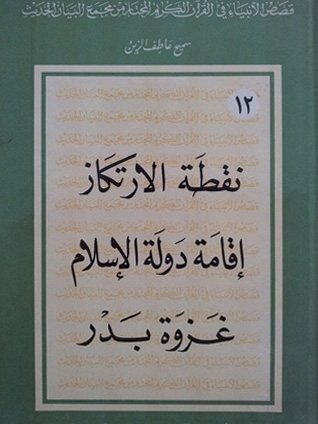 قصص الأنبياء في القرآن الكريم المختار من مجمع البيان الحديث
سميح عاطف الزين
١٢
نقطة الارتكاز
إقامة دولة الإسلام
غزوة بدر